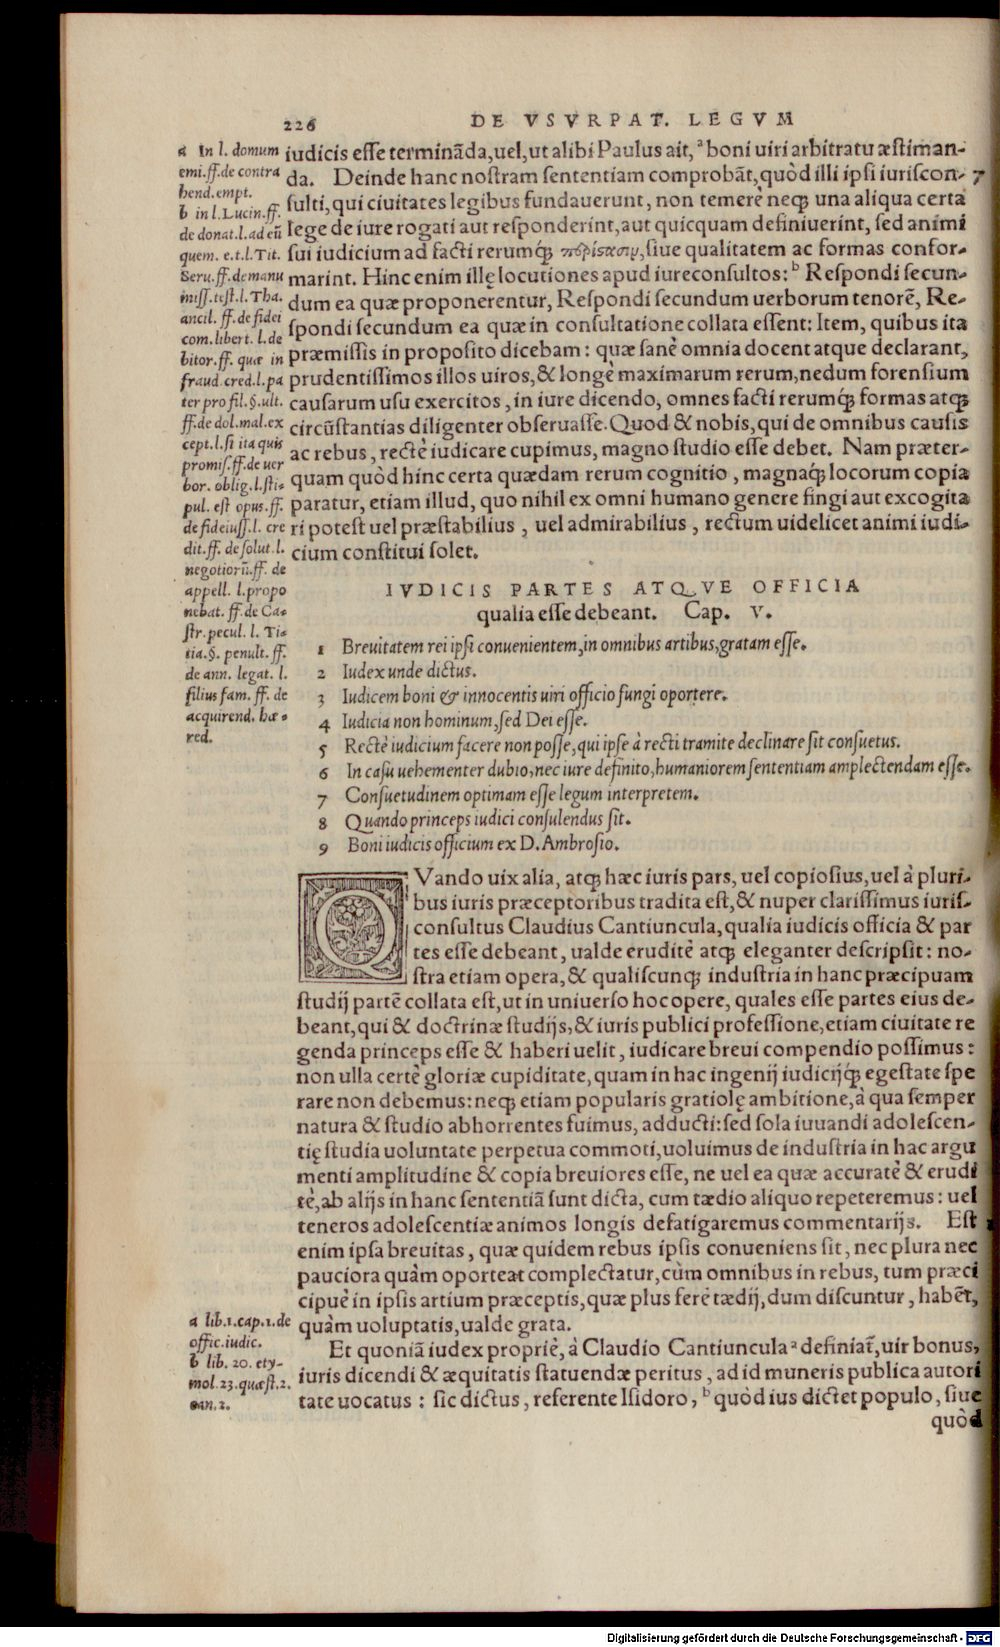 226
DE VSVRPAT. LEGVM
iudicis esse terminãda, uel, ut alibi Paulus ait, ᵃ boni uiri arbitratu æstiman-
da. Deinde hanc nostram sententiam comprobãt, quòd illi ipsi iuriscon- 7
sulti, qui ciuitates legibus fundauerunt, non temerè neq; una aliqua certa
lege de iure rogati aut responderint, aut quicquam definiuerint, sed animi
sui iudicium ad facti rerumq́; siue qualitatem ac formas confor-
marint. Hinc enim illę locutiones apud iureconsultos: ᵇ Respondi secun-
dum ea quæ proponerentur, Respondi secundum uerborum tenorẽ, Re-
spondi secundum ea quæ in consultatione collata essent: Item, quibus ita
præmissis in proposito dicebam: quæ sanè omnia docent atque declarant,
prudentissimos illos uiros, & longè maximarum rerum, nedum forensium
causarum usu exercitos, in iure dicendo, omnes facti rerumq́; formas atq;
circũstantias diligenter obseruasse. Quod & nobis, qui de omnibus causis
ac rebus, rectè iudicare cupimus, magno studio esse debet. Nam præter-
quam quòd hinc certa quædam rerum cognitio, magnaq́; locorum copia
paratur, etiam illud, quo nihil ex omni humano genere fingi aut excogita
ri potest uel præstabilius, uel admirabilius, rectum uidelicet animi iudi-
cium constitui solet.
a In l. domum
emi. ff. de contra
hend. empt.
b in l. Lucin. ff.
de donat. l. ad eũ
quem. e. t. l. Tit.
Seru. ff. de manu
miss. test. l. Tha.
ancil. ff. de fidei
com. libert. l. de
bitor. ff. quæ in
fraud. cred. l. pa
ter pro fil. §. ult.
ff. de dol. mal. ex
cept. l. si ita quis
promis. ff. de uer
bor. oblig. l. sti-
pul. est opus. ff.
de fideiuss. l. cre
dit. ff. de solut. l.
negotiorũ. ff. de
appell. l. propo
nebat. ff. de Ca-
str. pecul. l. Ti-
tia. §. penult. ff.
de ann. legat. l.
filius fam. ff. de
acquirend. hæ-
red.
IVDICIS PARTES ATQVE OFFICIA
qualia esse debeant. Cap. V.
1 Breuitatem rei ipsi conuenientem, in omnibus artibus, gratam esse.
2 Iudex unde dictus.
3 Iudicem boni & innocentis uiri officio fungi oportere.
4 Iudicia non hominum, sed Dei esse.
5 Rectè iudicium facere non posse, qui ipse à recti tramite declinare sit consuetus.
6 In casu uehementer dubio, nec iure definito, humaniorem sententiam amplectendam esse.
7 Consuetudinem optimam esse legum interpretem.
8 Quando princeps iudici consulendus sit.
9 Boni iudicis officium ex D. Ambrosio.
QVando uix alia, atq; hæc iuris pars, uel copiosius, uel à pluri-
bus iuris præceptoribus tradita est, & nuper clarissimus iuris-
consultus Claudius Cantiuncula, qualia iudicis officia & par
tes esse debeant, ualde eruditè atq; eleganter descripsit: no-
stra etiam opera, & qualiscunq; industria in hanc præcipuam
studij partẽ collata est, ut in uniuerso hoc opere, quales esse partes eius de-
beant, qui & doctrinæ studijs, & iuris publici professione, etiam ciuitate re
genda princeps esse & haberi uelit, iudicare breui compendio possimus:
non ulla certè gloriæ cupiditate, quam in hac ingenij iudicijq́; egestate spe
rare non debemus: neq; etiam popularis gratiolę ambitione, à qua semper
natura & studio abhorrentes fuimus, adducti: sed sola iuuandi adolescen-
tię studia uoluntate perpetua commoti, uoluimus de industria in hac argu
menti amplitudine & copia breuiores esse, ne uel ea quæ accuratè & erudi
tè, ab alijs in hanc sententiã sunt dicta, cum tædio aliquo repeteremus: uel
teneros adolescentiæ animos longis defatigaremus commentarijs. Est
enim ipsa breuitas, quæ quidem rebus ipsis conueniens sit, nec plura nec
pauciora quàm oporteat complectatur, cùm omnibus in rebus, tum præci
cipuè in ipsis artium præceptis, quæ plus ferè tædij, dum discuntur, habẽt,
quàm uoluptatis, ualde grata.
Et quoniã iudex propriè, à Claudio Cantiuncula ᵃ definiat̃, uir bonus,
iuris dicendi & æquitatis statuendæ peritus, ad id muneris publica autori
tate uocatus: sic dictus, referente Isidoro, ᵇ quòd ius dictet populo, siue
quòd
a lib. 1. cap. 1. de
offic. iudic.
b lib. 20. ety-
mol. 23. quæst. 2.
can. 2.
Digitalisierung gefördert durch die Deutsche Forschungsgemeinschaft - DFG